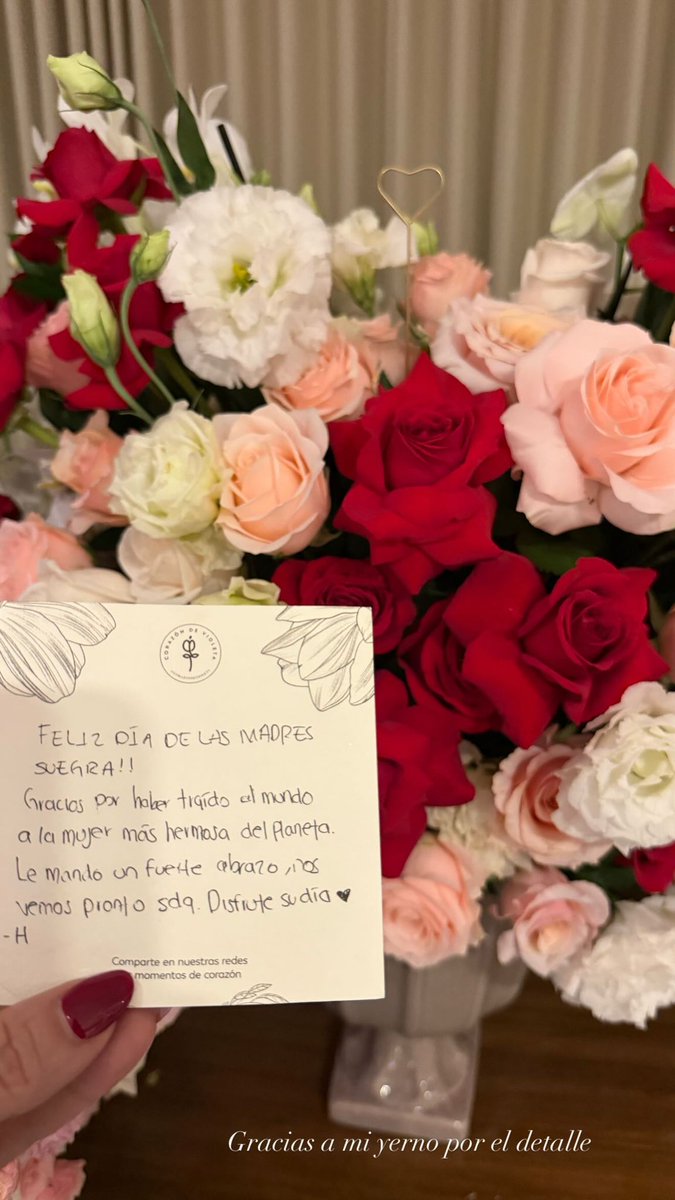 CORAZÓN DE VIOLETA
FELIZ DÍA DE LAS MADRES
SUEGRA!!
Gracias por haber traído al mundo
a la mujer más hermosa del Planeta.
Le mando un fuerte abrazo, nos
vemos pronto sdq. Disfrute su día ♥
-H
Comparte en nuestras redes
momentos de corazón
Gracias a mi yerno por el detalle